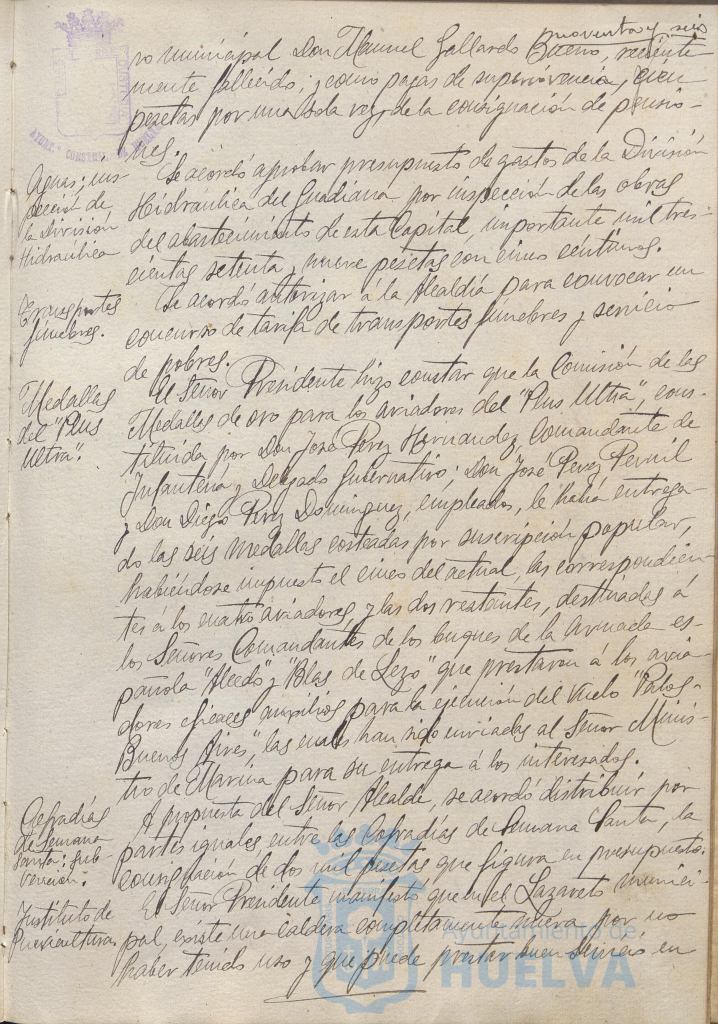 noventa y seis
ro municipal Don Manuel Gallardo Bueno, reciente
mente fallecido; y como pagas de supervivencia, cien
pesetas por una sola vez, de la consignación de pensio-
nes.
Aguas; ins-
pección de
la División
Hidraúlica
Se acordó aprobar presupuesto de gastos de la División
Hidraúlica del Guadiana por inspección de las obras
del abastecimiento de esta Capital, importante mil tres-
cientas setenta y nueve pesetas con cinco centimos.
Transportes
fúnebres.
Se acordó autorizar á la Alcaldía para convocar un
concurso de tarifa de transportes fúnebres y servicio
de pobres.
Medallas
del "Plus
Ultra".
El Señor Presidente hizo constar que la Comisión de las
Medallas de oro para los aviadores del "Plus Ultra", cons-
tituida por Don José Perez Hernandez, Comandante de
Infantería y Delegado Gubernativo; Don José Perez Pernil
y Don Diego Perez Dominguez, empleados, le había entrega-
do las seis medallas costeadas por suscripción popular,
habiéndose impuesto el cinco del actual, las correspondien-
tes á los cuatro aviadores, y las dos restantes, destinadas á
los Señores Comandantes de los buques de la Armada es-
pañola "Alsedo" y "Blas de Lezo" que prestaron á los avia-
dores eficaces auxilios para la ejecución del vuelo "Palos-
Buenos Aires", las cuales han sido enviadas al Señor Minis-
tro de Marina para su entrega á los interesados.
Cofradías
de Semana
Santa: Sub-
vención.
A propuesta del Señor Alcalde, se acordó distribuir por
partes iguales entre las Cofradías de Semana Santa, la
consignación de dos mil pesetas que figura en presupuesto.
Instituto de
Puericultura
El Señor Presidente manifestó que en el Lazareto munici-
pal, existe una caldera completamente nueva por no
haber tenido uso y que puede prestar buen servicio en
Ayuntamiento de
HUELVA